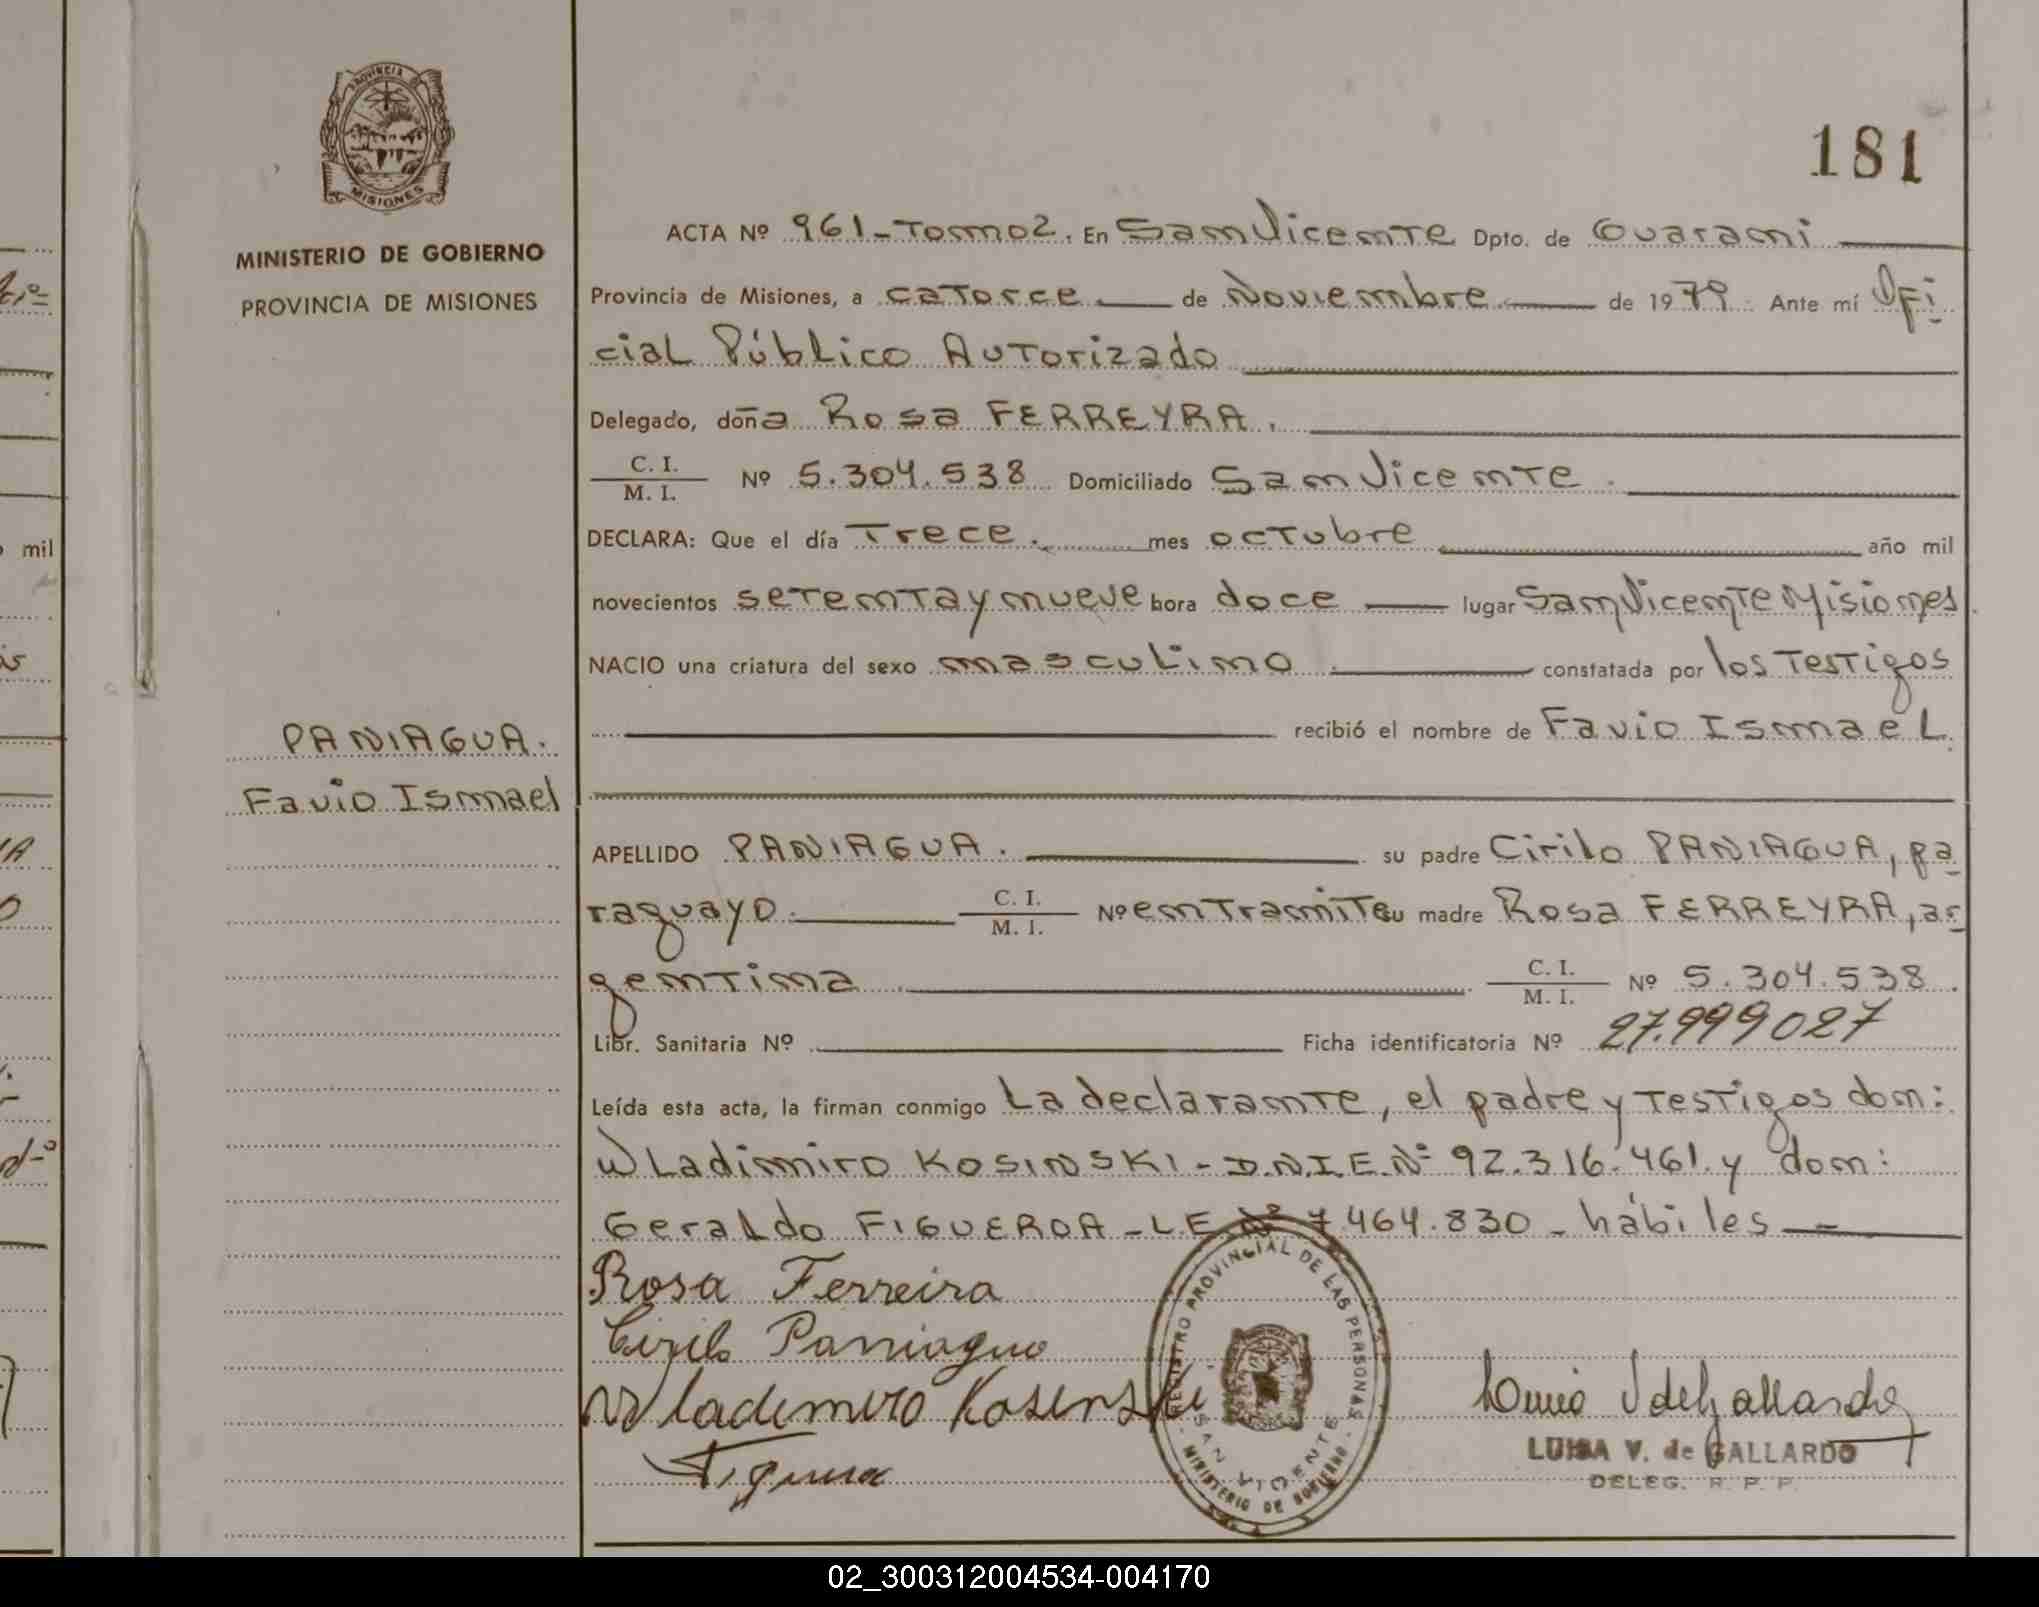 PROVINCIA
MISIONES
MINISTERIO DE GOBIERNO
PROVINCIA DE MISIONES
181
ACTA Nº 961-Tomo2. En San Vicente Dpto. de Guarani
Provincia de Misiones, a catorce de Noviembre de 1979. Ante mí Ofi
cial Público Autorizado
Delegado, doña Rosa FERREYRA.
C. I.
M. I. Nº 5.304.538 Domiciliado San Vicente.
DECLARA: Que el día Trece. mes octubre año mil
novecientos setenta y nueve hora doce lugar San Vicente Misiones
NACIO una criatura del sexo masculino. constatada por los Testigos
recibió el nombre de Favio Ismael.
PANIAGUA.
Favio Ismael
APELLIDO PANIAGUA. su padre Cirilo PANIAGUA, pa
raguayo. C. I.
M. I. Nº en Tramite su madre Rosa FERREYRA, ar
gentina. C. I.
M. I. Nº 5.304.538.
Libr. Sanitaria Nº Ficha identificatoria Nº 27.999027
Leída esta acta, la firman conmigo La declarante, el padre y Testigos don:
Wladimiro KOSINSKI - D.N.I.E.Nº 92.316.461. y don:
Geraldo FIGUEROA - L.E. Nº 7.464.830 - hábiles
Rosa Ferreira
Cirilo Paniagua
Wlademiro Kosenski
Figueroa
REGISTRO PROVINCIAL DE LAS PERSONAS
SAN VICENTE
MINISTERIO DE GOBIERNO
LUISA V. de GALLARDO
DELEG. R. P. P.
mil
02_300312004534-004170